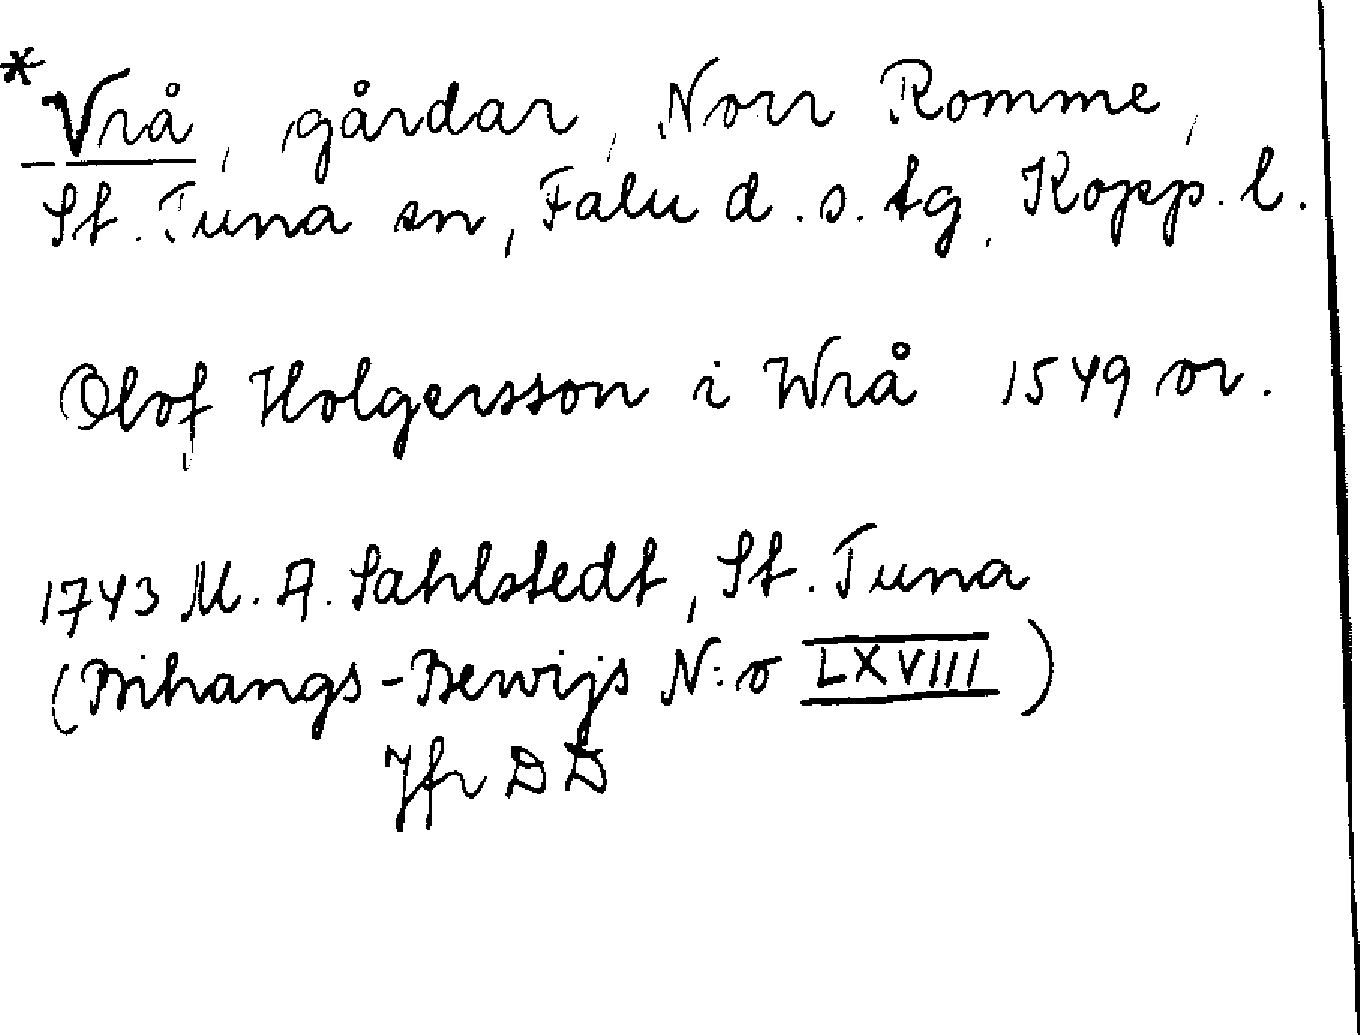 *Vrå, gårdar, Norr Romme,
St. Tuna sn, Falu d. s. tg, Kopp. l.
Olof Holgersson i Wrå 1549 or.
1743 M. A. Sahlstedt, St. Tuna
(Bihangs-Bewijs N:o LXVIII)
Jfr DD